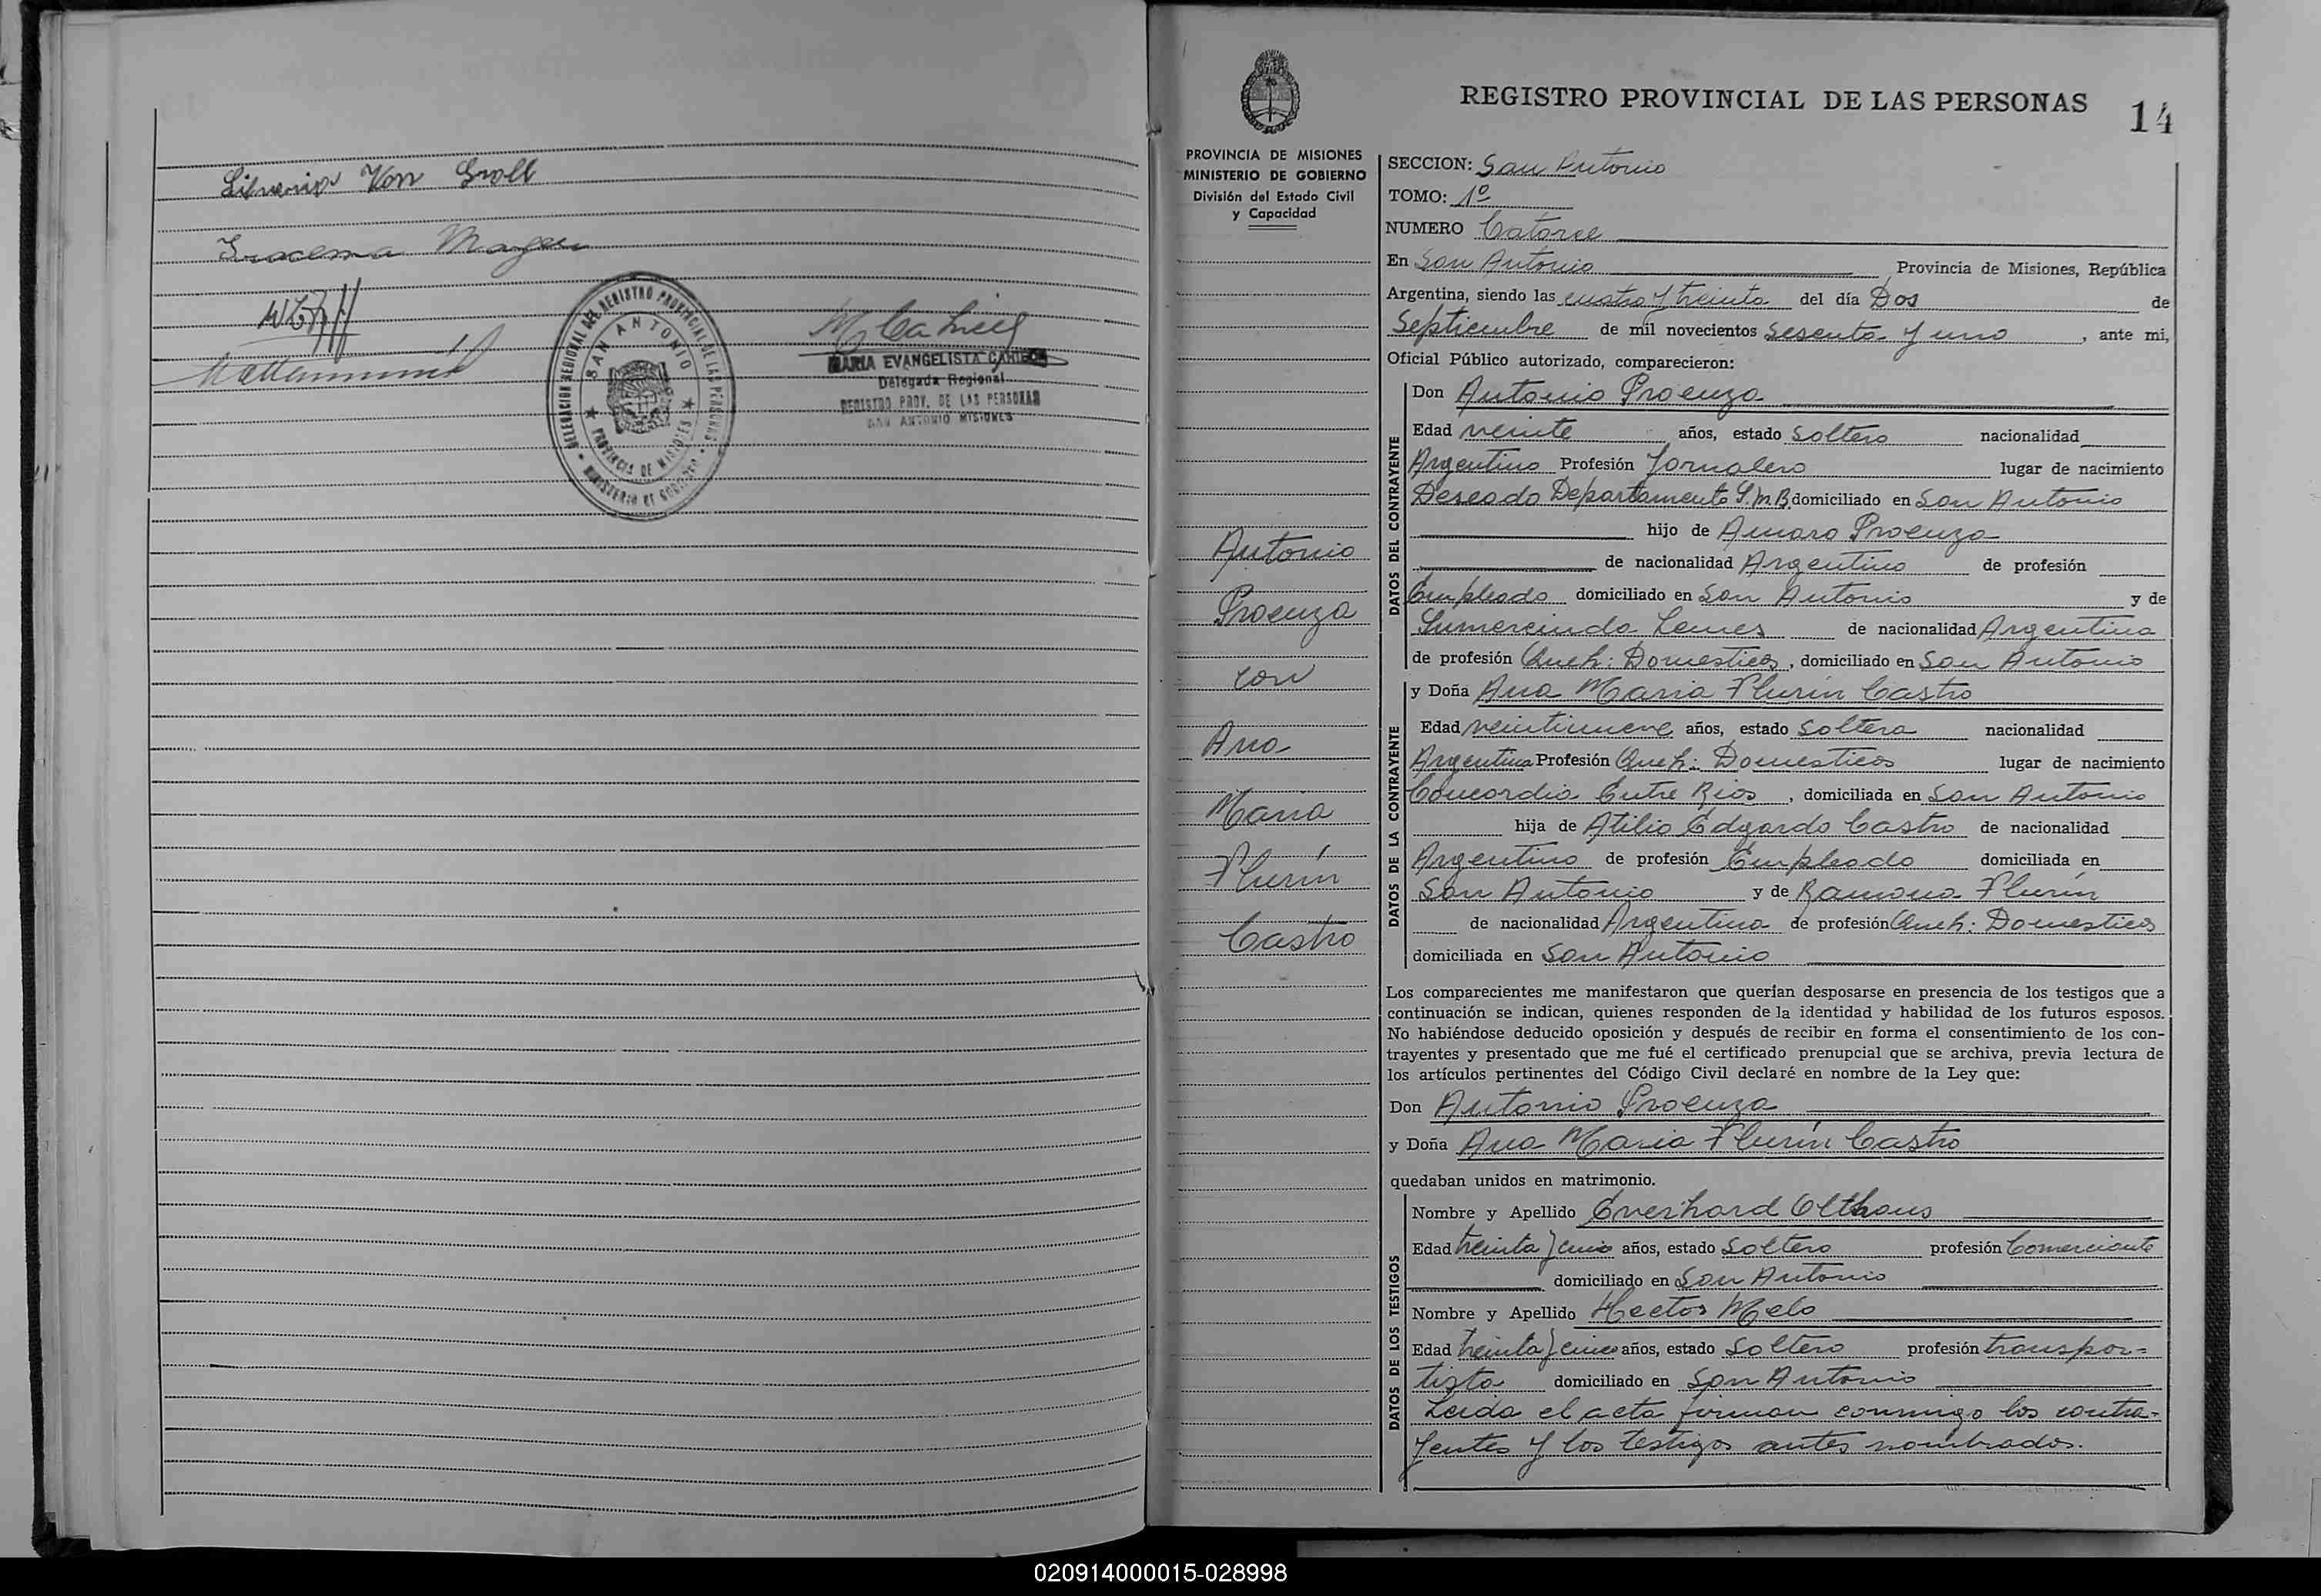 Von Groll
Iracema
DELEGACION REGIONAL DEL REGISTRO PROVINCIAL DE LAS PERSONAS
SAN ANTONIO
PROVINCIA DE MISIONES
MINISTERIO DE GOBIERNO
MARIA EVANGELISTA
Delegada Regional
REGISTRO PROV. DE LAS PERSONAS
SAN ANTONIO MISIONES
PROVINCIA DE MISIONES
MINISTERIO DE GOBIERNO
División del Estado Civil
y Capacidad
Antonio
Proenza
con
Ana
Maria
Flurín
Castro
REGISTRO PROVINCIAL DE LAS PERSONAS
14
SECCION: San Antonio
TOMO: 1º
NUMERO Catorce
En San Antonio Provincia de Misiones, República
Argentina, siendo las cuatro y treinta del día Dos de
Septiembre de mil novecientos sesenta y uno, ante mi,
Oficial Público autorizado, comparecieron:
DATOS DEL CONTRAYENTE
Don Antonio Proenza
Edad veinte años, estado soltero nacionalidad
Argentino Profesión Jornalero lugar de nacimiento
Deseado Departamento G.M.B. domiciliado en San Antonio
hijo de Amaro Proenza
de nacionalidad Argentino de profesión
Empleado domiciliado en San Antonio y de
Lemes de nacionalidad Argentina
de profesión Queh: Domesticos, domiciliado en San Antonio
DATOS DE LA CONTRAYENTE
y Doña Ana Maria Flurín Castro
Edad veintinueve años, estado soltera nacionalidad
Argentina Profesión Queh: Domesticos lugar de nacimiento
Concordia Entre Rios, domiciliada en San Antonio
hija de Atilio Edgardo Castro de nacionalidad
Argentino de profesión Empleado domiciliada en
San Antonio y de Ramona Flurín
de nacionalidad Argentina de profesión Queh: Domesticos
domiciliada en San Antonio
Los comparecientes me manifestaron que querían desposarse en presencia de los testigos que a
continuación se indican, quienes responden de la identidad y habilidad de los futuros esposos.
No habiéndose deducido oposición y después de recibir en forma el consentimiento de los con-
trayentes y presentado que me fué el certificado prenupcial que se archiva, previa lectura de
los artículos pertinentes del Código Civil declaré en nombre de la Ley que:
Don Antonio Proenza
y Doña Ana Maria Flurín Castro
quedaban unidos en matrimonio.
DATOS DE LOS TESTIGOS
Nombre y Apellido Everhard Olthaus
Edad treinta y años, estado soltero profesión Comerciante
domiciliado en San Antonio
Nombre y Apellido Hector Melo
Edad treinta y cinco años, estado soltero profesión transpor-
tista domiciliado en San Antonio
Leida el acta firman conmigo los contra-
yentes y los testigos antes nombrados.
020914000015-028998